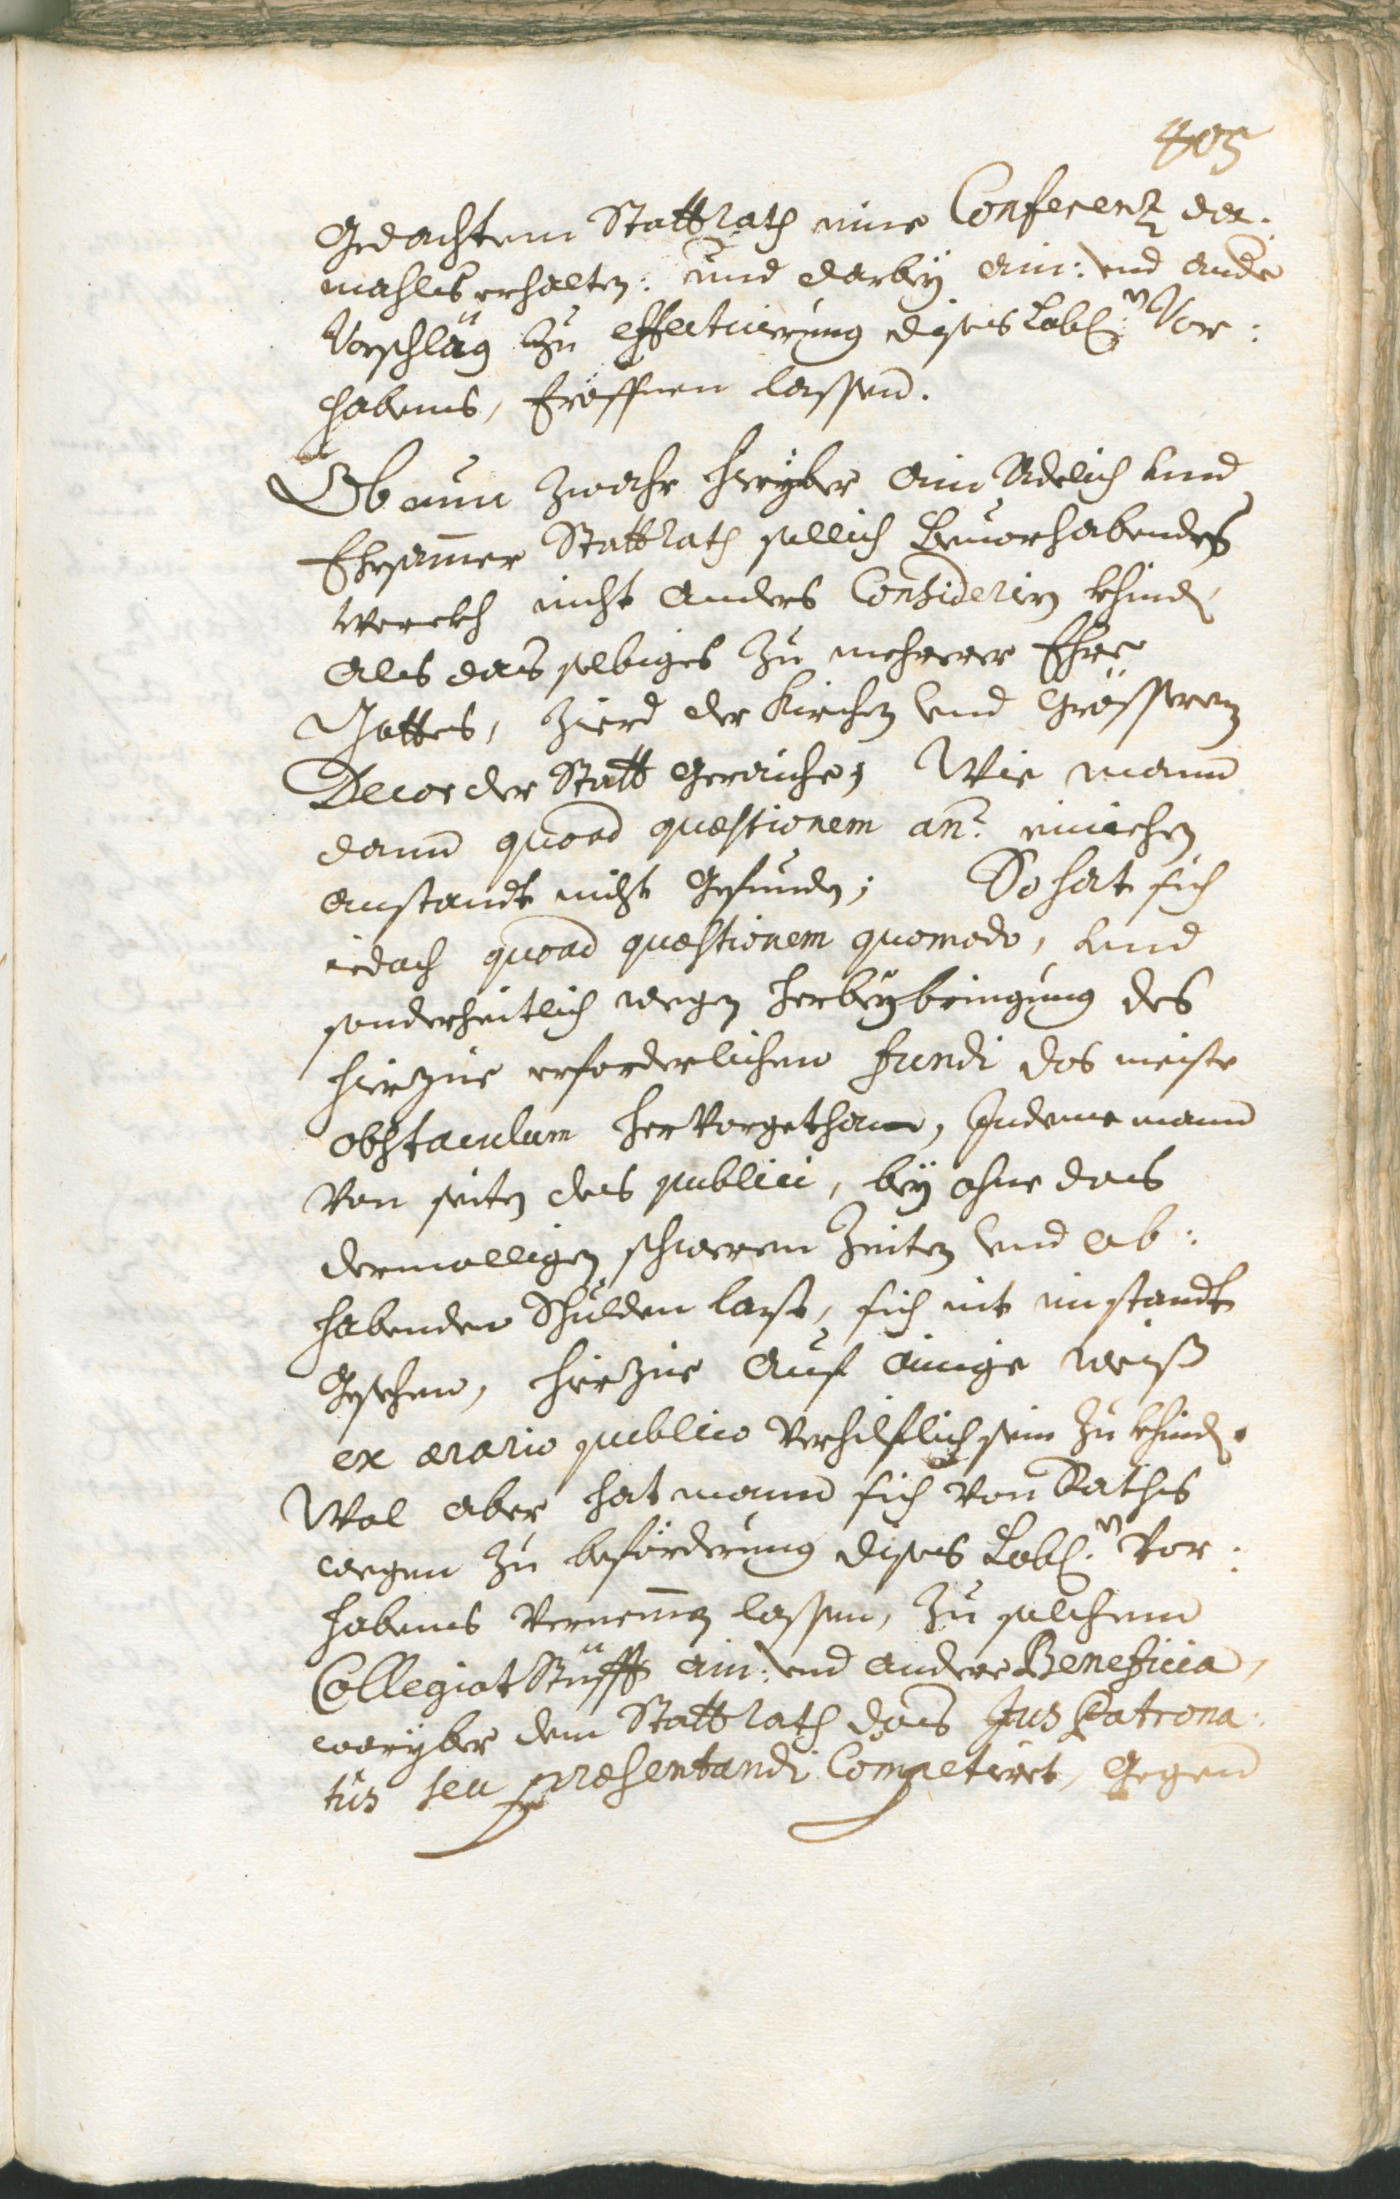 405
Gedachtem Stattrath eine Conferenz der:
mahls erhalten: und darbey ain: und ander
Vorschläg zu effectuierung dises Lobl:n Vor:
habens, Eröffnen lassen.
Ob nun zwahr hieryber ain Adelich und
Ehrsammer Stattrath sollich bevorhabendes
werckh nicht anders Considerirn khind,
als das selbiges zu mehrerer Ehre
Gottes, Zierd der Kirchen und Grössern
Decor der Statt geraiche; Wie mann
dann quoad quæstionem an? einichen
anstandt nicht gefunden; So hat sich
iedoch quoad quæstionem quomodo, und
sonderheitlich wegen herbeybringung des
hierzue erforderlichen fundi das meiste
obstaculum hervorgethan, Indeme mann
von seiten des publici, bey ohne das
dermalligen schweren Zeiten und ob:
habenden Schulden last, sich nit imstandt
gesehen, hierzue auf ainige weiß
ex ærario publico verhilflich sein zu khind.
Wol aber hat mann sich von Raths
wegen zu beförderung dises Lobl:n Vor:
habens vernemmen lassen, zu solchem
Collegiat Stüfft ain: und andere Beneficia,
woryber dem Stattrath das Jus Patrona:
tus seu præsentandi Competiert, gegen